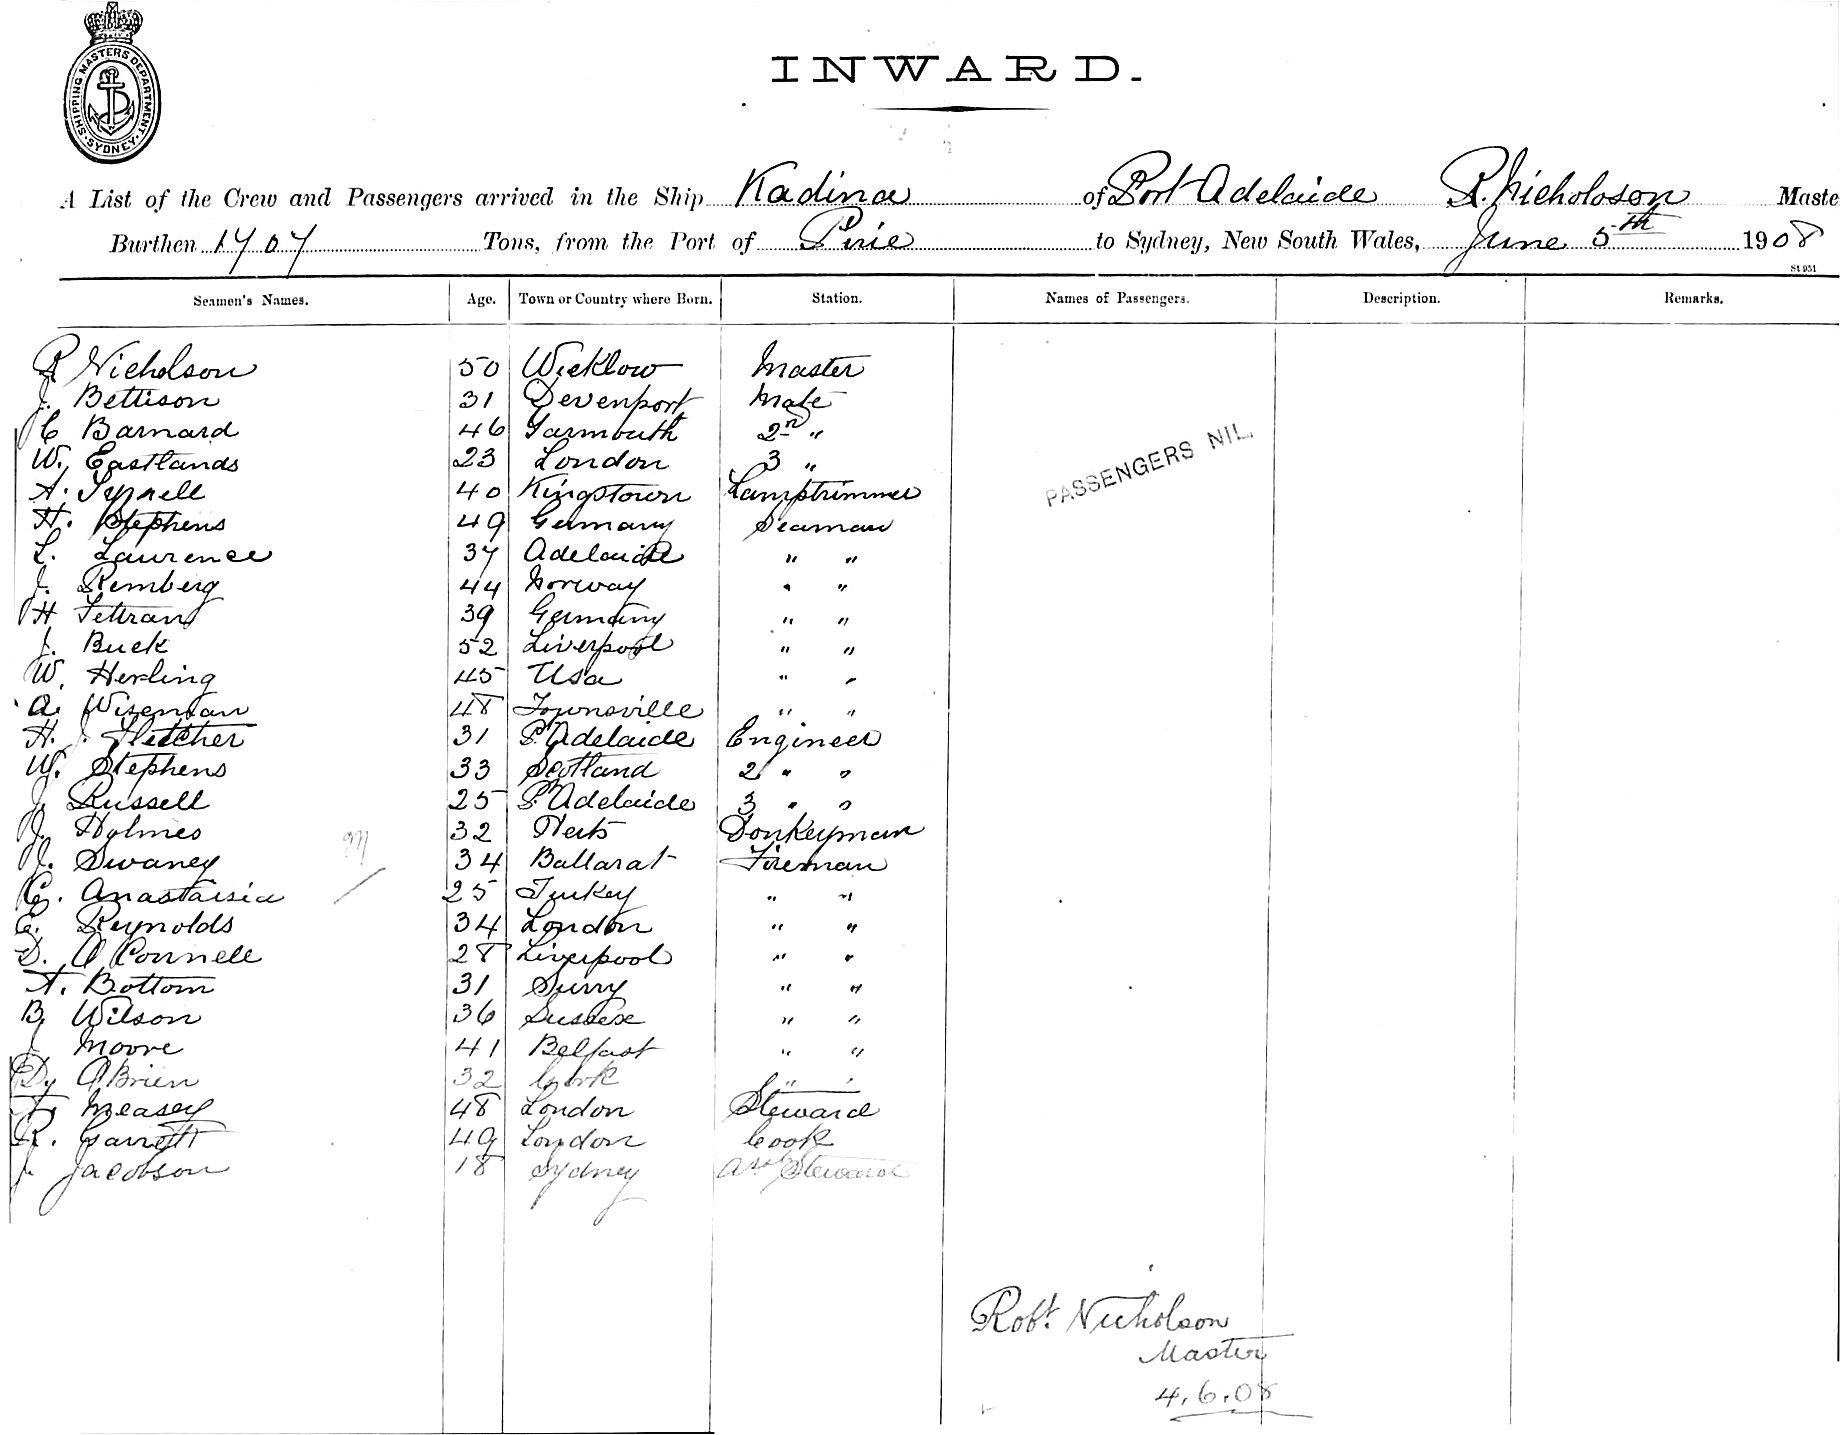 SHIPPING MASTERS DEPARTMENT
SYDNEY
INWARD.
A List of the Crew and Passengers arrived in the Ship Kadina of Port Adelaide R. Nicholson Maste
Burthen 1707 Tons, from the Port of Pirie to Sydney, New South Wales, June 5th 1908
St 951
Seamen's Names. Age. Town or Country where Born. Station. Names of Passengers. Description. Remarks.
R Nicholson 50 Wicklow Master
J. Bettison 31 Devenport Mate
C Barnard 46 Yarmouth 2nd "
W. Eastlands 23 London 3 "
A. Tyrrell 40 Kingstown Lamptrimmer
H. Stephens 49 Germany Seaman
L. Laurence 37 Adelaide " "
J. Remberg 44 Norway " "
H Tettran 39 Germany " "
J. Buck 52 Liverpool " "
W. Herling 45 Usa " "
A. Wiseman 48 Townsville " "
H. J. Fletcher 31 Pt Adelaide Engineer
W. Stephens 33 Scotland 2 " "
J. Russell 25 Pt Adelaide 3 " "
J. Holmes 32 Herts Donkeyman
J. Swaney 34 Ballarat Fireman
G. Anastaisia 25 Turkey " "
G. Reynolds 34 London " "
D. O Connell 28 Liverpool " "
A. Bottom 31 Surry " "
B. Wilson 36 Sussex " "
J Moore 41 Belfast " "
D. O Brien 32 Cork " "
F. Measey 48 London Steward
R. Garrett 49 London Cook
J. Jacobson 18 Sydney Asst Steward
PASSENGERS NIL.
Robt. Nicholson
Master
4.6.08